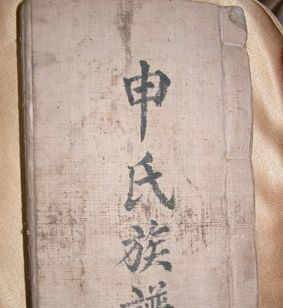 申氏族譜